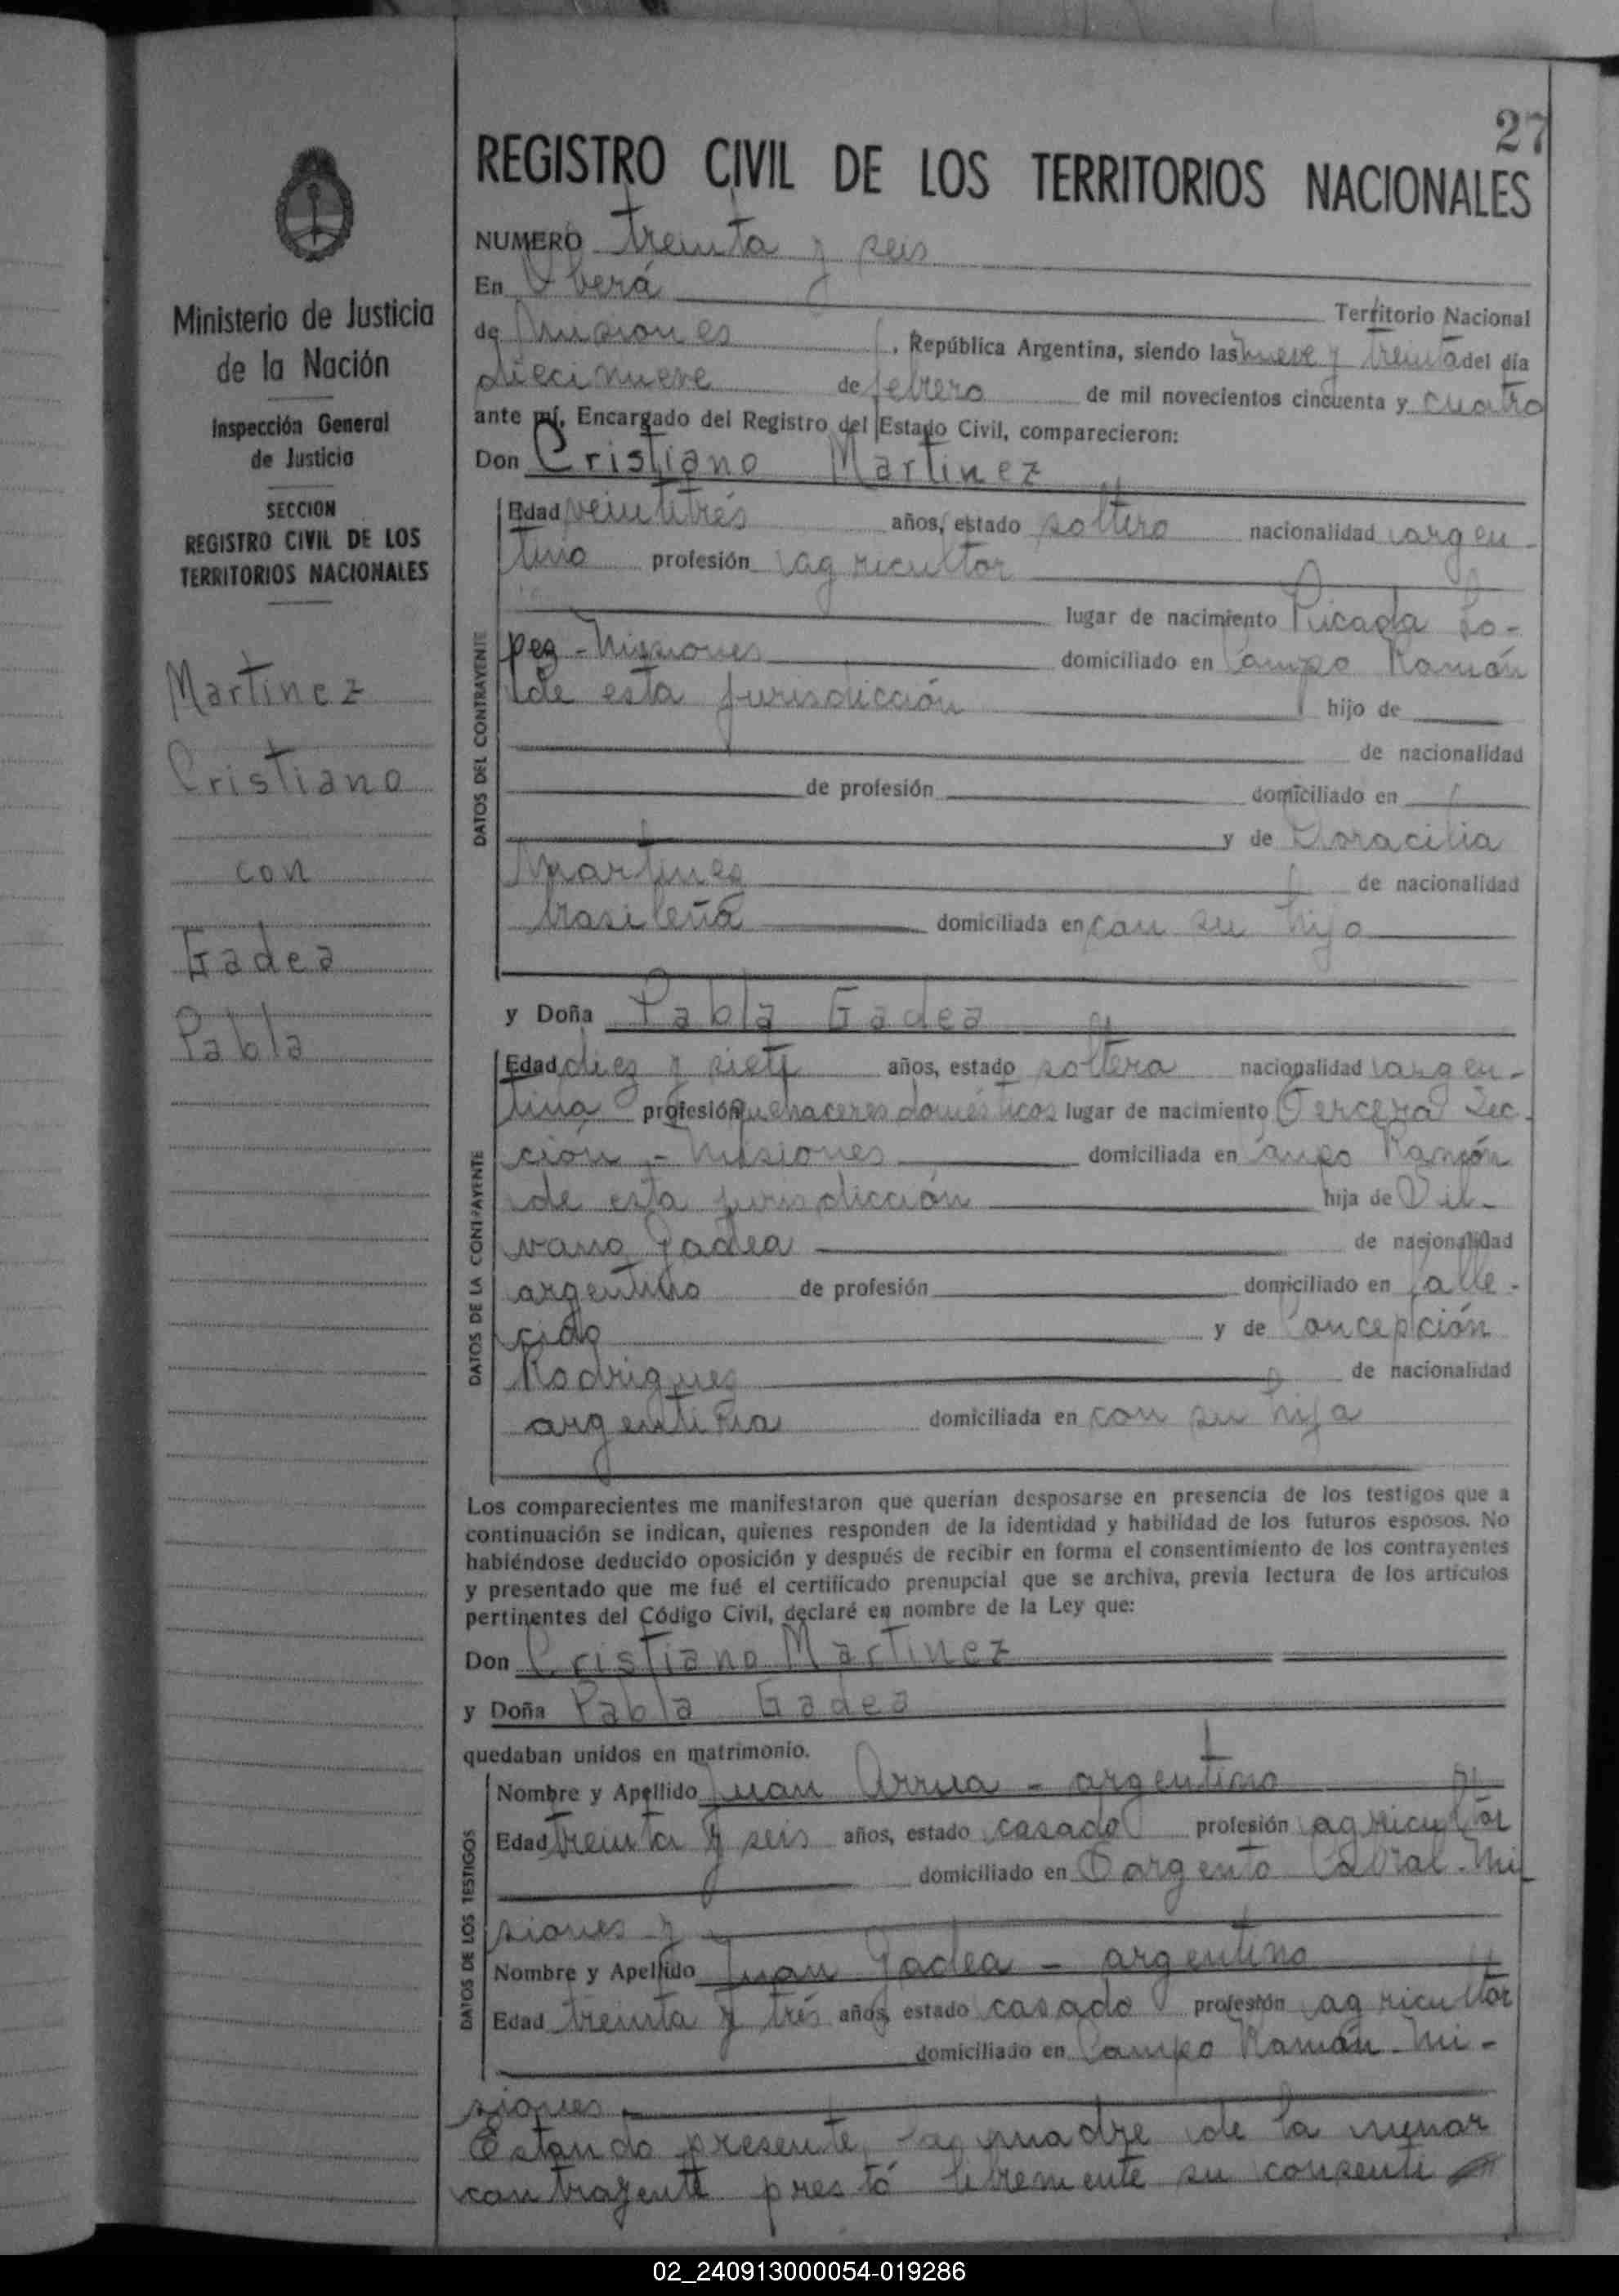 27
REGISTRO CIVIL DE LOS TERRITORIOS NACIONALES
Ministerio de Justicia
de la Nación
Inspección General
de Justicia
SECCION
REGISTRO CIVIL DE LOS
TERRITORIOS NACIONALES
Martinez
Cristiano
con
Gadea
Pabla
NUMERO treinta y seis
En Oberá Territorio Nacional
de Misiones, República Argentina, siendo las nueve y treinta del día
diecinueve de febrero de mil novecientos cincuenta y cuatro
ante mí, Encargado del Registro del Estado Civil, comparecieron:
Don Cristiano Martinez
DATOS DEL CONTRAYENTE
Edad veintitrés años, estado soltero nacionalidad argen-
tino profesión agricultor
lugar de nacimiento Picada Lo-
pez - Misiones domiciliado en Campo Ramón
de esta jurisdicción hijo de
de nacionalidad
de profesión domiciliado en
y de Doracilia
Martinez de nacionalidad
brasileña domiciliada en con su hijo
y Doña Pabla Gadea
DATOS DE LA CONTRAYENTE
Edad diez y siete años, estado soltera nacionalidad argen-
tina profesión quehaceres domésticos lugar de nacimiento Tercera Sec-
ción - Misiones domiciliada en Campo Ramón
de esta jurisdicción hija de Vil-
vano Gadea de nacionalidad
argentino de profesión domiciliado en falle-
cido y de Concepción
Rodrigues de nacionalidad
argentina domiciliada en con su hija
Los comparecientes me manifestaron que querían desposarse en presencia de los testigos que a
continuación se indican, quienes responden de la identidad y habilidad de los futuros esposos. No
habiéndose deducido oposición y después de recibir en forma el consentimiento de los contrayentes
y presentado que me fué el certificado prenupcial que se archiva, previa lectura de los artículos
pertinentes del Código Civil, declaré en nombre de la Ley que:
Don Cristiano Martinez
y Doña Pabla Gadea
quedaban unidos en matrimonio.
DATOS DE LOS TESTIGOS
Nombre y Apellido Juan Arrua - argentino
Edad treinta y seis años, estado casado profesión agricultor
domiciliado en Sargento Cabral - Mi
siones y
Nombre y Apellido Juan Gadea - argentino
Edad treinta y trés años, estado casado profesión agricultor
domiciliado en Campo Ramón - Mi-
siones
Estando presente la madre de la menor
contrayente prestó libremente su consenti
02_240913000054-019286